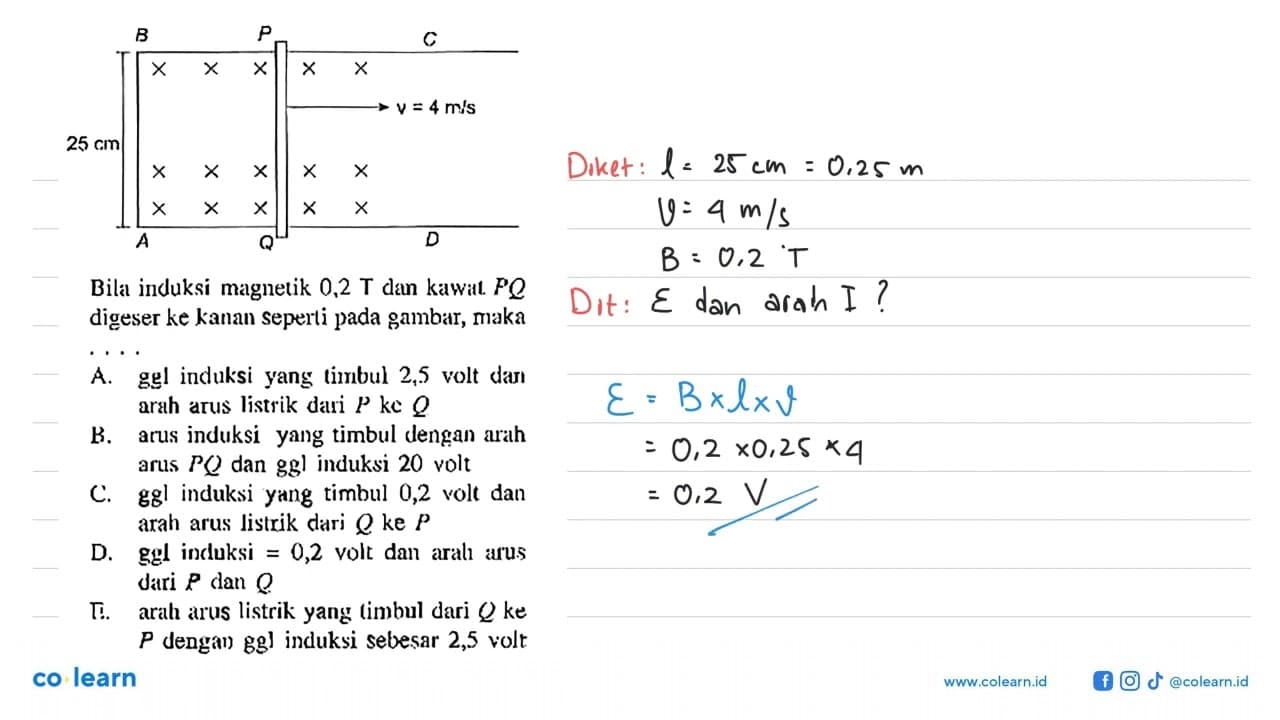 B P C
× × × × ×
v = 4 m/s
25 cm
× × × × ×
× × × × ×
A Q D
Bila induksi magnetik 0,2 T dan kawat PQ
digeser ke kanan seperti pada gambar, maka
. . . .
A. ggl induksi yang timbul 2,5 volt dan
arah arus listrik dari P ke Q
B. arus induksi yang timbul dengan arah
arus PQ dan ggl induksi 20 volt
C. ggl induksi yang timbul 0,2 volt dan
arah arus listrik dari Q ke P
D. ggl induksi = 0,2 volt dan arah arus
dari P dan Q
E. arah arus listrik yang timbul dari Q ke
P dengan ggl induksi sebesar 2,5 volt
Diket: l = 25 cm = 0.25 m
V = 4 m/s
B = 0.2 T
Dit: ε dan arah I ?
ε = B × l × v
= 0,2 × 0,25 × 4
= 0.2 V
co learn
www.colearn.id
@colearn.id